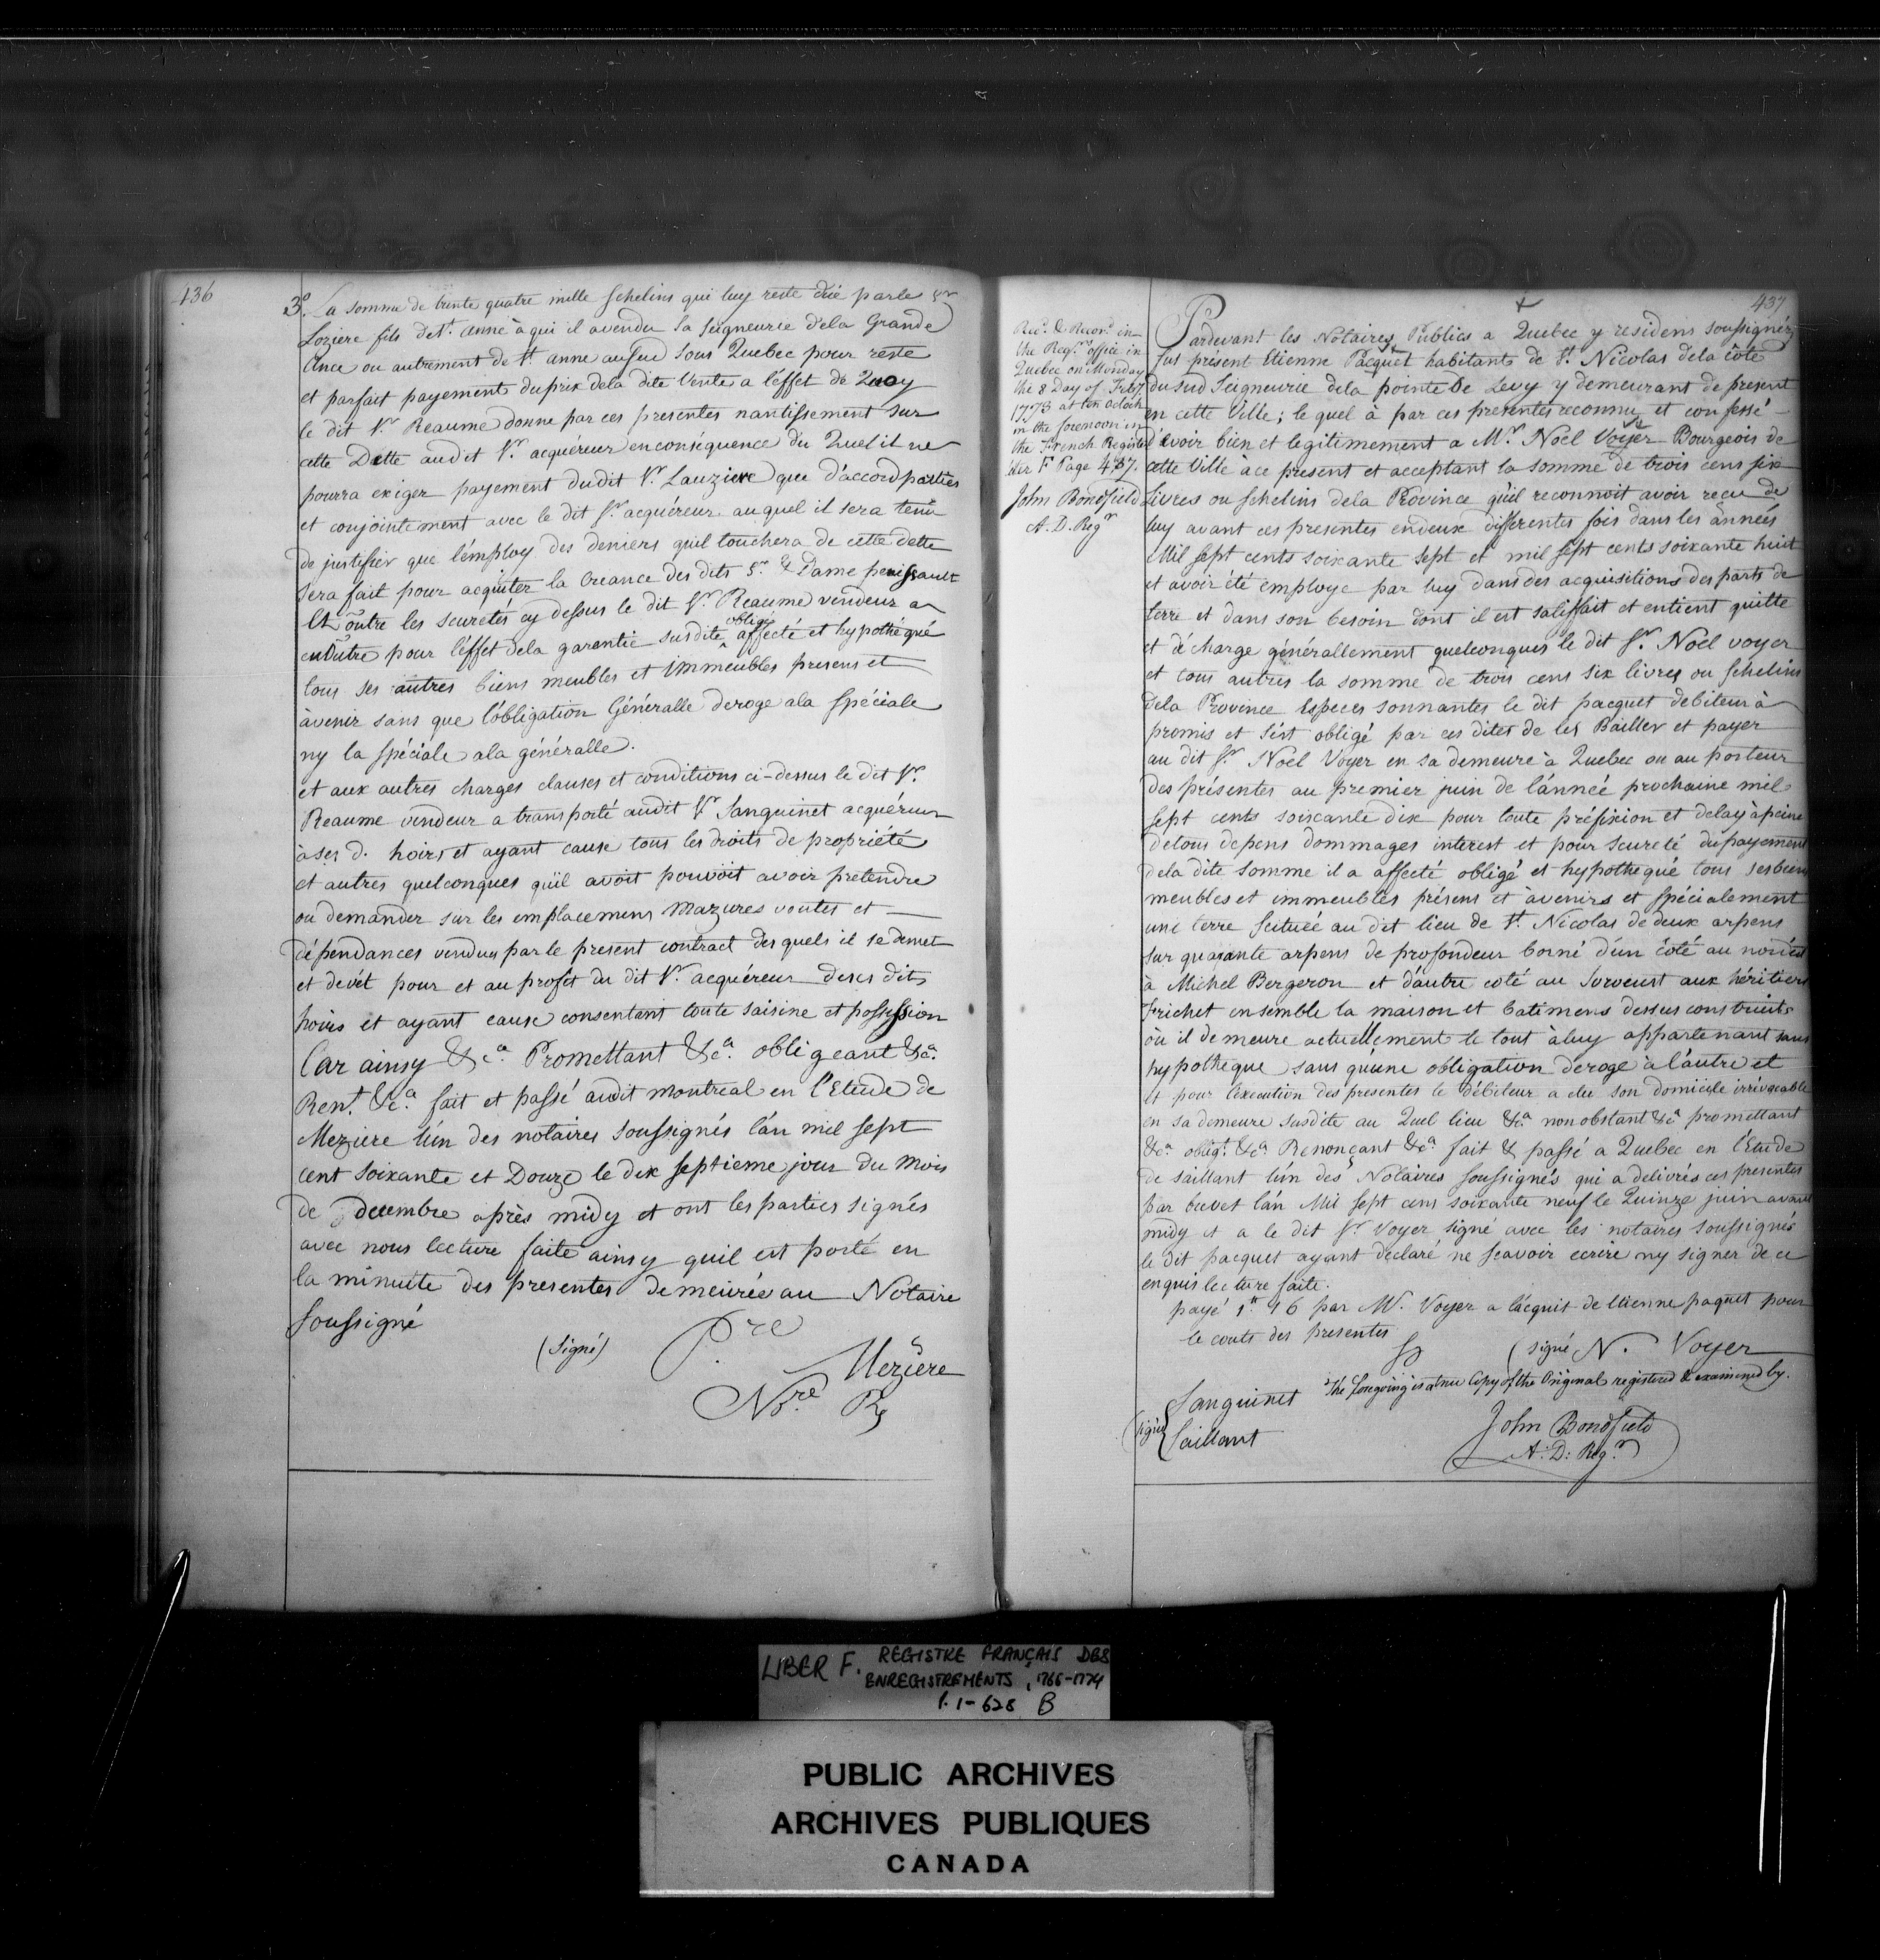 436
3.° La somme de trente quatre mille schelins qui luy reste düe par le Sr
Loziere fils de St. anne à qui il a vendu la Seigneurie dela Grande
Ance ou autrement de St. anne au sud sous Quebec pour reste
et parfait payement du prix dela dite Vente a l'effet de Quoy
le dit Sr. Reaume donne par ces presentes nantissement sur
cette Dette audit Sr. acquéreur en conséquence du Quel il ne
pourra exiger payement dudit Sr. Lauziere que d'accord parties
et conjointement avec le dit Sr. acquéreur auquel il sera tenu
de justifier que l'employ des deniers qu'il touchera de cette dette
sera fait pour acquiter la Creance des dits Sr. & Dame penissault
Et outre les seuretés cy dessus le dit Sr. Reaume vendeur a
en outre pour l'effet dela garentie susdite obligé affecté et hypothéqué
tous ses autres biens meubles et immeubles presens et
àvenir sans que l'obligation Généralle deroge ala spéciale
ny la spéciale ala généralle.
et aux autres charges clauses et conditions ci-dessus le dit Sr.
Reaume vendeur a transporté audit Sr Sanguinet acquéreur
à ses d. hoirs et ayant cause tous les droits de propriété
et autres quelconques qu'il avoit pouvoit avoir pretendre
ou demander sur les emplacemens Mazures voutes et —
dépendances vendus par le present contract des quels il se demet
et devét pour et au profit du dit Sr. acquéreur deses dits
hoirs et ayant cause consentant toute saisine et possession
Car ainsy &c.a Promettant &c.a obligeant &c.a
Ren.t &c.a fait et passé audit Montreal en l'Etude de
Meziere l'un des notaires soussignés l'an mil sept
cent soixante et Douze le dix septieme jour du Mois
de decembre après midy et ont les parties signés
avec nous lecture faite ainsy qu'il est porté en
la minutte des presentes demeurée au Notaire
soussigné
(Signé) P.re
Mezière
No.re
437
Rec.d & Recor.d in
the Reg.rs office in
Quebec on Monday
the 8 Day of Feb.y
1773 at ten oclock
in the forenoon in
the French Register
Liber F Page 437.
John Bondfield
A. D. Reg.r
Pardevant les Notaires Publics a Quebec y residens soussignéz
fut présent Etienne Pacquet habitants de St. Nicolas dela côte
du sud Seigneurie dela pointe De Levy y demeurant de present
en cette Ville; le quel à par ces presentes reconnu et confessé —
devoir bien et legitimement a Mr. Noel Voyer Bourgeois de
cette Ville à ce present et acceptant la somme de trois cens six
Livres ou schelins dela Province qu'il reconnoit avoir recu de
luy avant ces presentes en deux differentes fois dans les années
Mil sept cents soixante sept et mil sept cents soixante huit
et avoir été employe par luy dans des acquisitions des parts de
terre et dans son besoin dont il est satisfait et en tient quitte
et décharge générallement quelconques le dit Sr. Noël voyer
et tous autres la somme de trois cens six livres ou schelins
dela Province Especes sonnantes le dit pacquet debiteur à
promis et s'est obligé par ces dites de les Bailler et payer
au dit Sr. Noël Voyer en sa demeure à Quebec ou au porteur
des présentes au premier juin de l'année prochaine mil
sept cents soixante dix pour toute préfixion et delay à peine
detous depens dommages interest et pour seureté dupayement
dela dite somme il a affecté obligé et hypothequé tous ses biens
meubles et immeubles présens et àvenirs et spécialement
une terre scituée au dit lieu de St. Nicolas de deux arpens
sur quarante arpens de profondeur borné d'un côté au nordest
à Michel Bergeron et d'autre coté au Sorouest aux héritiers
Frichet ensemble la maison et batimens dessus construits
ou il demeure actuellement le tout à luy appartenant sans
hypotheque sans qu'une obligation deroge à l'autre et
et pour l'execution des presentes le débiteur a élu son domicile irrévocable
en sa demeure susdite au Quel lieu &c.a nonobstant &c.a promettant
&c.a oblig.t &c.a Renonçant &c.a fait & passé a Quebec en l'Etude
de saillant l'un des Notaires soussignés qui a delivrés ces presentes
par brevet l'an Mil sept cens soixante neuf le Quinze juin avant
midy et a le dit Sr. Voyer signé avec les notaires soussignés
le dit pacquet ayant declaré ne sçavoir ecrire ny signer de ce
enquis lecture faite.
payé 1tt 16 par M. Voyer a l'acquit de Etienne paquet pour
le couts des presentes
(signé N. Voyer
The foregoing is a true Copy of the Original registered & examined by.
(signé Sanguinet
Saillant
John Bondfield
A: D: Reg.r
LIBER F. REGISTRE FRANÇAIS DES
ENREGISTREMENTS, 1766-1774
P. 1-628 B
PUBLIC ARCHIVES
ARCHIVES PUBLIQUES
CANADA